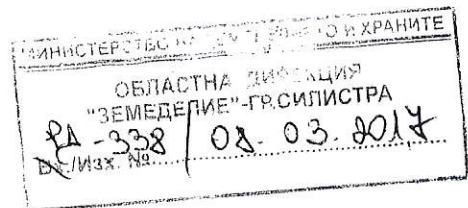 МИНИСТЕРСТВО НА ЗЕМЕДЕЛИЕТО И ХРАНИТЕ
ОБЛАСТНА ДИРЕКЦИЯ
"ЗЕМЕДЕЛИЕ"-ГР.СИЛИСТРА
РД-338/08.03.2017
Вх./Изх. №